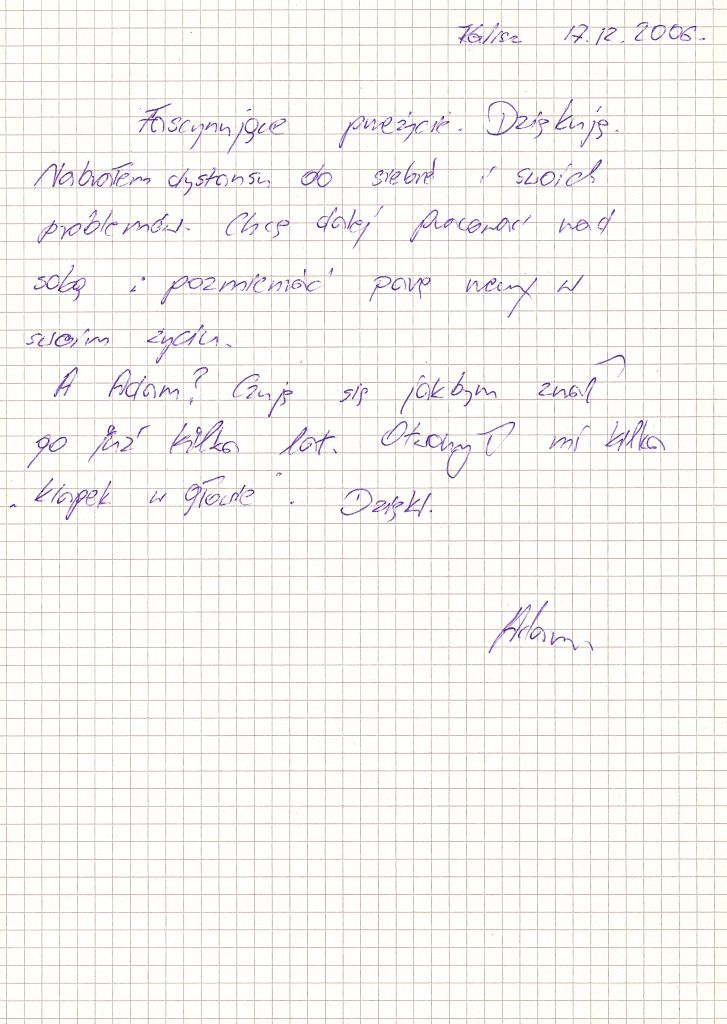 Kalisz 17.12.2006.
Fascynujące przeżycie. Dziękuję.
Nabrałem dystansu do siebie i swoich
problemów. Chcę dalej pracować nad
sobą i pozmieniać parę rzeczy w
swoim życiu.
A Adam? Czuję się jakbym znał
go już kilka lat. Otworzył mi kilka
„klapek w głowie". Dzięki.
Adam